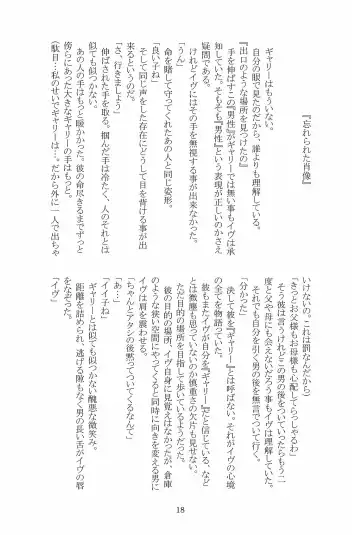 『忘れられた肖像』
ギャリーはもういない。
自分の眼で見たのだから、誰よりも理解している。
『出口のような場所を見つけたの』
手を伸ばすこの『男性』がギャリーでは無い事もイヴは承
知していた。そもそも『男性』という表現が正しいのかさえ
疑問である。
けれどイヴにはその手を無視する事が出来なかった。
「うん」
命を賭して守ってくれたあの人と同じ姿形。
『良い子ね』
そして同じ声をした存在にどうして目を背ける事が出
来るというのだ。
『さ、行きましょう』
伸ばされた手を取る。掴んだ手は冷たく、人のそれとは
似ても似つかない。
あの人の手はもっと暖かかった。彼の命尽きるまでずっと
傍らにあった大きなギャリーの手はもっと。
(駄目…私のせいでギャリーは…。だから外に一人で出ちゃ
いけないの。これは罰なんだから)
『きっとお父様もお母様も心配してらっしゃるわ』
そう彼は言うけれどこの男の後をついていったらもう二
度と父や母にも会えないだろう事もイヴは理解していた。
それでも自分を引く男の後を無言でついて行く。
「分かった」
決して彼を『ギャリー』とは呼ばない。それがイヴの心境
の全てを物語っていた。
彼もまたイヴが自分を『ギャリー』だと信じている、など
とは微塵も思っていないのか慎重さの欠片も見せない。
ただ目的の場所を目指して歩いているようだった。
彼の目的の場所、イヴ自身に見覚えはなかったが、倉庫
のような狭い空間にやってくると同時に向きを変える男に
イヴは肩を震わせる。
『ちゃんとアタシの後黙ってついてくるなんて』
「あ…」
『イイ子ね』
ギャリーとは似ても似つかない醜悪な微笑み。
距離を詰められ、逃げる隙もなく男の長い舌がイヴの唇
をなぞった。
『イヴ』
18